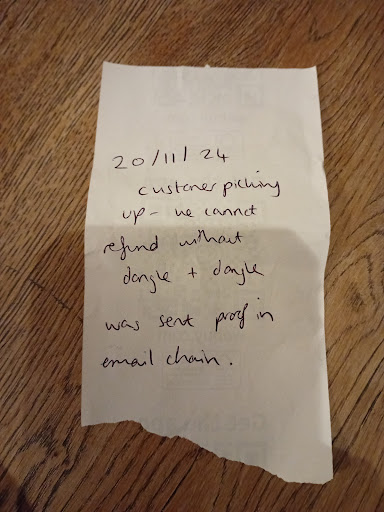 20/11/24
customer picking
up - we cannot
refund without
dongle + dongle
was sent proof in
email chain.